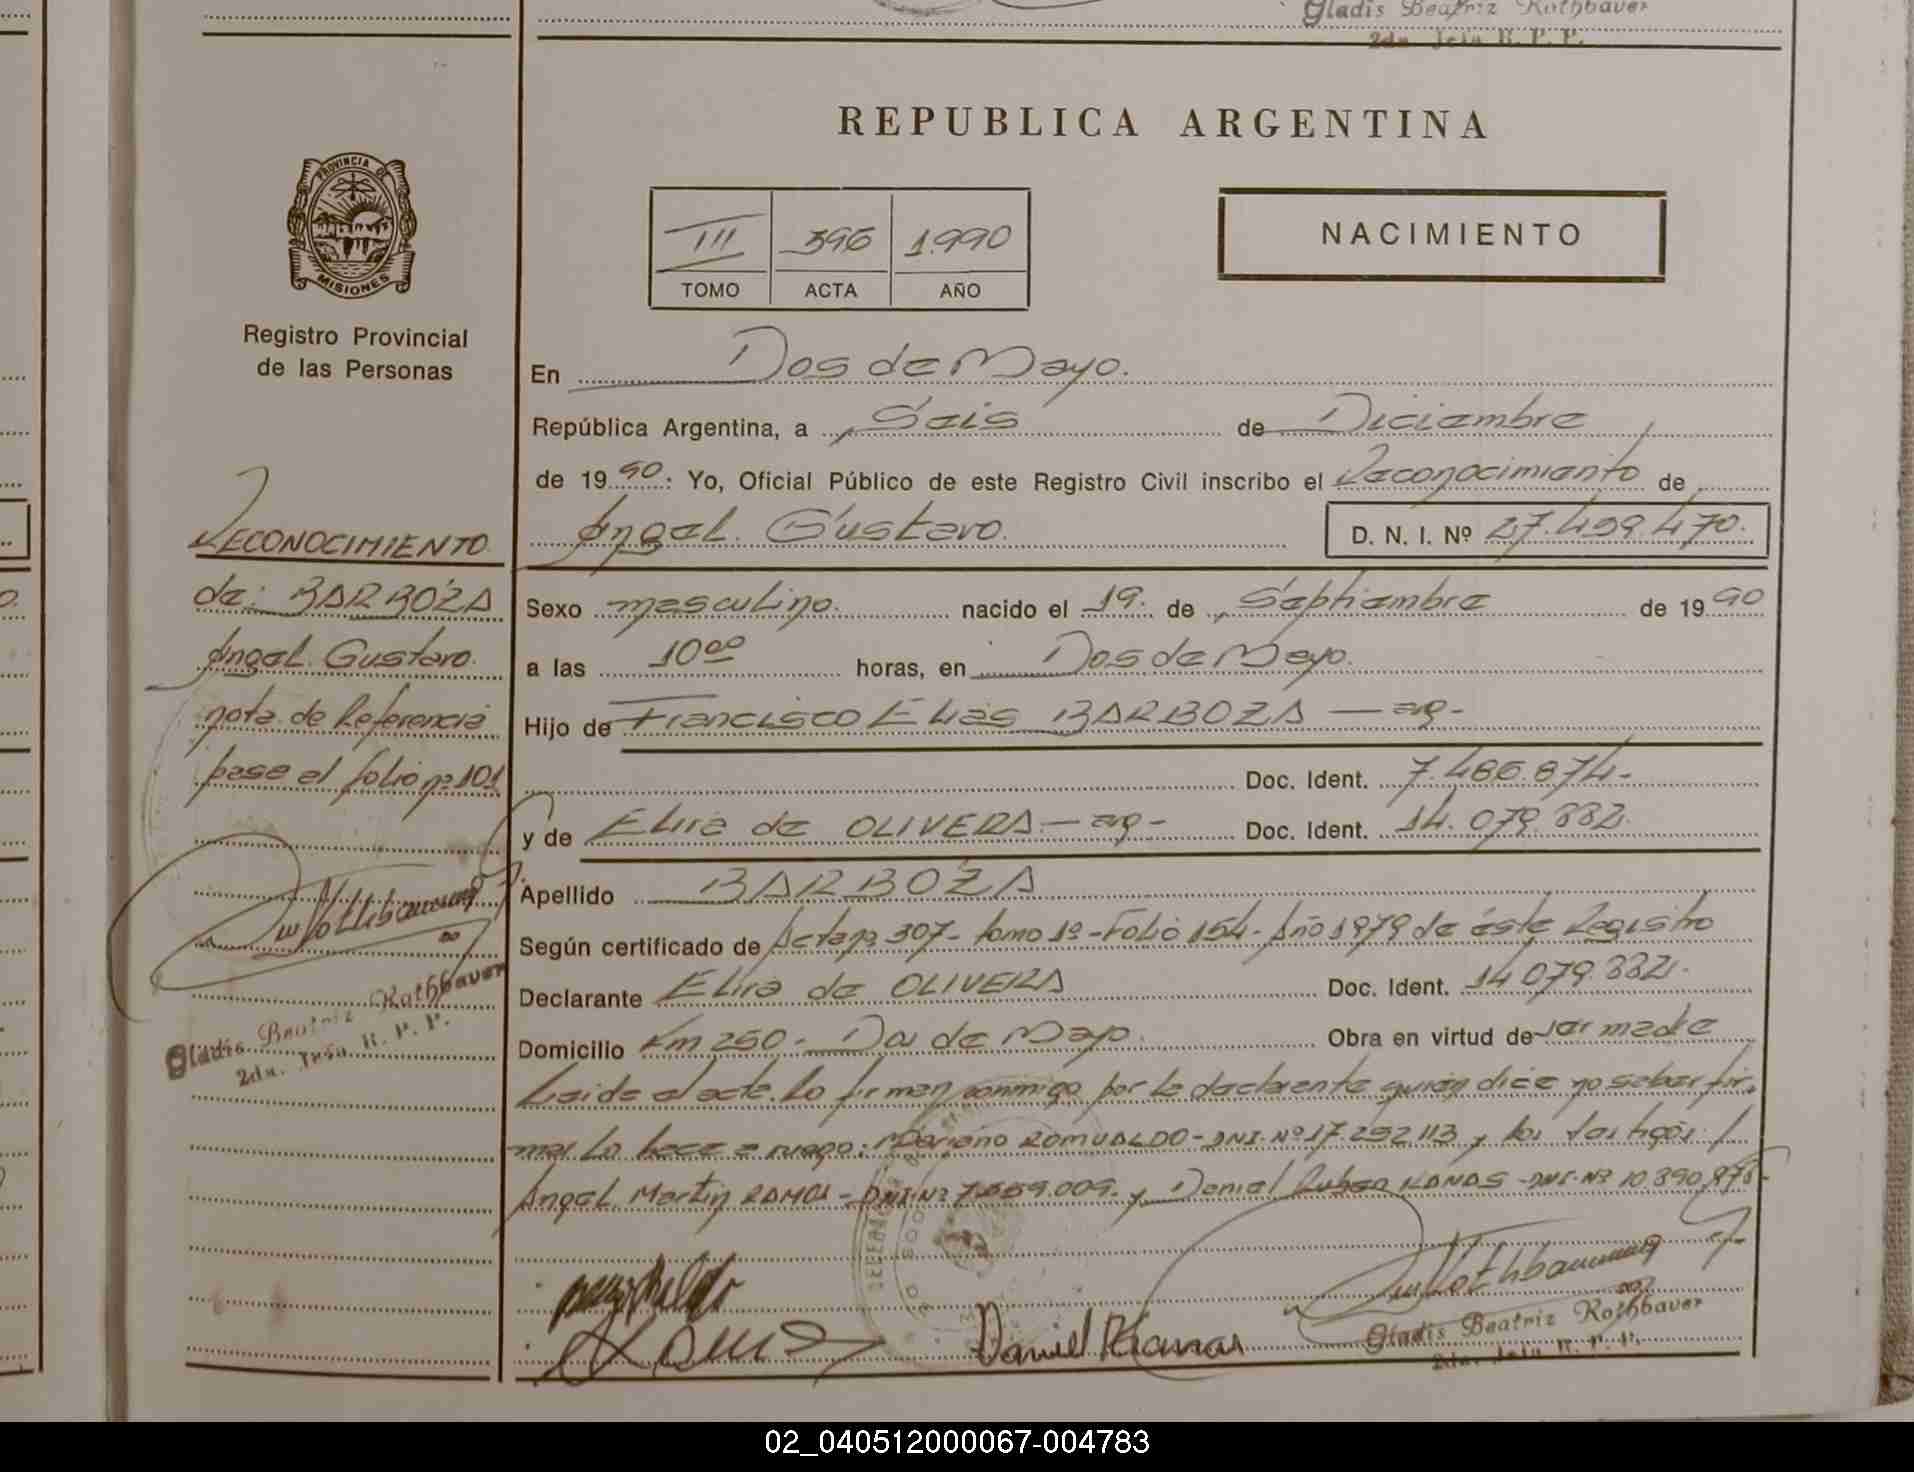 Gladis Beatriz Rothbauer
2da. Jefa R. P. P.
REPUBLICA ARGENTINA
PROVINCIA DE
MISIONES
III 396 1.990
TOMO ACTA AÑO
NACIMIENTO
Registro Provincial
de las Personas
En Dos de Mayo.
República Argentina, a Seis de Diciembre
de 19 90 : Yo, Oficial Público de este Registro Civil inscribo el Reconocimiento de
Angel Gustavo. D. N. I. Nº 27.459.470.
RECONOCIMIENTO
de: BARBOZA
Angel Gustavo.
nota de Referencia
pase al folio nº 101
Gladis Beatriz Rothbauer
2da. Jefa R. P. P.
Sexo masculino. nacido el 19. de Septiembre de 19 90
a las 10⁰⁰ horas, en Dos de Mayo.
Hijo de Francisco Elias BARBOZA — arg-
Doc. Ident. 7.486.874-
y de Elira de OLIVERA — arg- Doc. Ident. 14.079.882.
Apellido BARBOZA
Según certificado de Acta nº 307- tomo 1º- Folio 154- Año 1979 de éste Registro
Declarante Elira de OLIVERA Doc. Ident. 14.079.882.
Domicilio Km 250- Dos de Mayo. Obra en virtud de ser madre
Leida el acta. Lo firman conmigo por la declarante quien dice no saber fir-
mar lo hace a ruego: Mariano ROMUALDO- DNI. Nº 17.292.113 y los testigos
Angel Martin RAMOS - DNI Nº 7.559.009. y Daniel Ruben KANAS - DNI. Nº 10.890.875-
Daniel Kanas
Gladis Beatriz Rothbauer
2da. Jefa R. P. P.
02_040512000067-004783